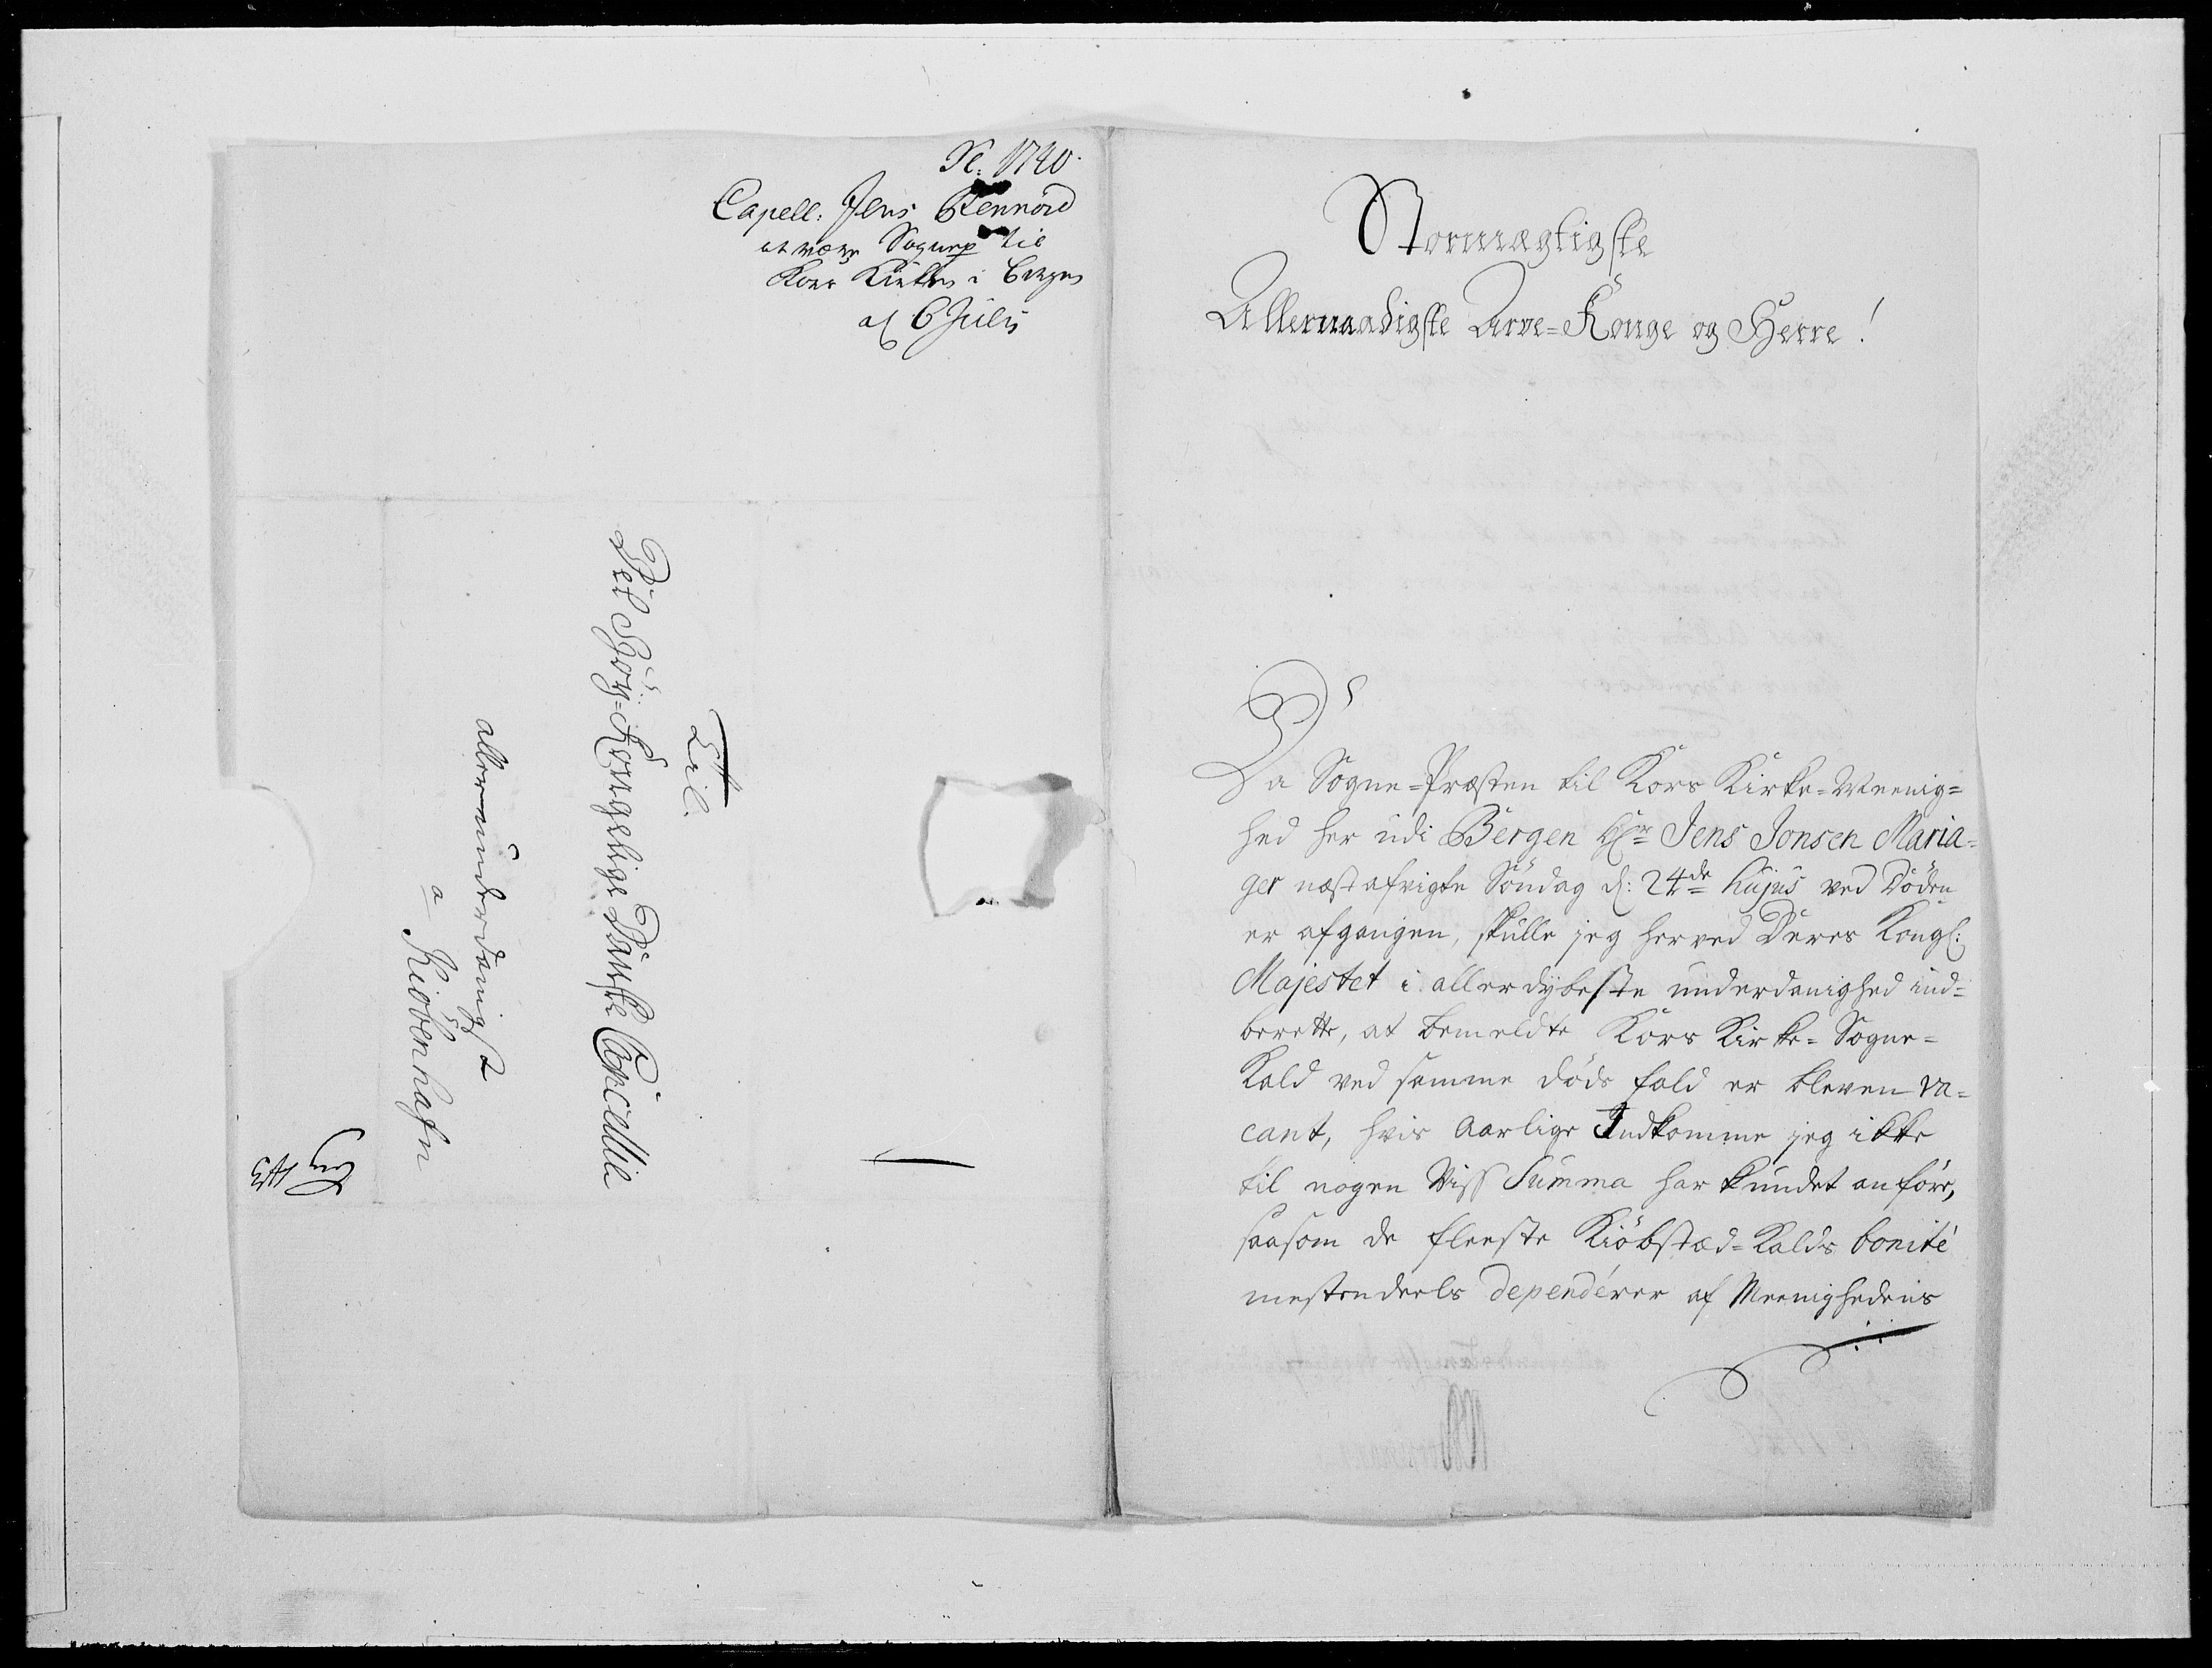 No: 1740.
Capell: Jens Rennord
at være Sognep til
Kors Kirken i Bergen
af 6 Julij
Til
Det Höy-Kongelige Danske Cancellie
allerunderdanigst
a
Kiöbenhafn
Stormægtigste
Allernaadigste Arve-Konge og Herre!
Da Sogne-Præsten til Kors Kirke-Meenig=
hed her udi Bergen Hr Jens Jonsen Maria=
ger næstafvigte Söndag d: 24de hujus ved Döden
er afgangen, skulle jeg herved Deres Kongl:
Majestet i allerdybeste underdanighed ind=
berette, at bemeldte Kors Kirke-Sogne=
Kald ved samme döds fald er bleven va=
cant, hvis Aarlige Indkomme jeg ikke
til nogen Viss Summa har kundet anföre,
saasom de fleeste Kiöbstæd-Kalds bonité
mestendeels dependérer af Meenighedens